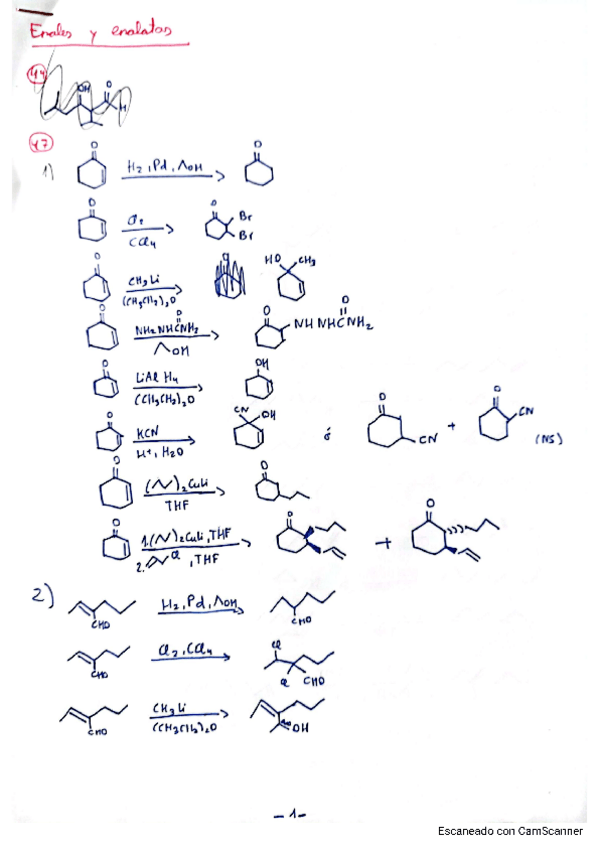 Enales y enolatos
44
OH O H
47
1) O H₂, Pd, ∧OH O
O Cl₂ CCl₄ O Br Br
O CH₃Li (CH₃CH₂)₂O HO CH₃
O NH₂NHCNH₂ O ∧OH O NH NHCNH₂ O
O LiAlH₄ (CH₃CH₂)₂O OH
O KCN H⁺, H₂O CN OH ó O CN + O CN (NS)
O ( )₂CuLi THF O
O 1. ( )₂CuLi, THF 2. Cl, THF O + O
2) CHO H₂, Pd, ∧OH CHO
CHO Cl₂, CCl₄ Cl Cl CHO
CHO CH₃Li (CH₃CH₂)₂O OH
- 1 -
Escaneado con CamScanner